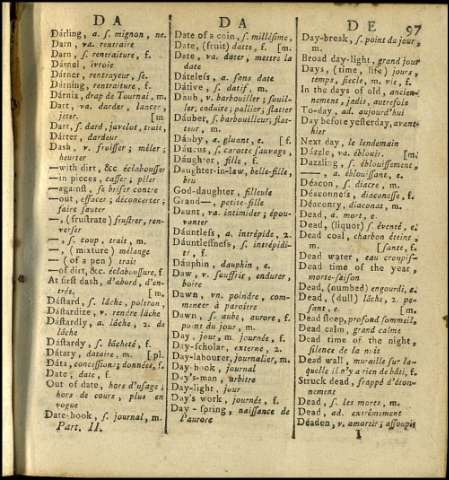 DA
Dárling, a. s. mignon, ne.
Darn, va. rentraire
Darn, s. rentraiture, f.
Dárnel, ivroie
Dárner, rentrayeur, se.
Dárning, rentraiture, f.
Dárnix, drap de Tournai, m.
Dart, va. darder, lancer,
jeter. [m
Dart, s. dard, javelot, trait,
Dárter, dardeur
Dash, v. froisser; mêler;
heurter
—with dirt, &c éclabousser
—in pieces, casser; piler
—against, se briser contre
—out, effacer; déconcerter;
faire sauter
—, (frustrate) frustrer, ren-
verser
—, s. coup, trait, m.
—, (mixture) mélange
— (of a pen) trait
—of dirt, &c. éclaboussure, f
At first dash, d'abord, d'en-
trée. [m.
Dástard, s. lâche, poltron,
Dástardize, v. rendre lâche
Dástardly, a. lâche, 2. de
lâche
Dástardy, s. lâcheté, f.
Dátary, dataire, m. [pl.
Dáta, concessions; données, f.
Date; date, f.
Out of date, hors d'usage;
hors de cours, plus en
vogue
Date-book, s. journal, m.
Part. II.
DA
Date of a coin, s. millésime,
Date, (fruit) datte, f. [m.
Date, va. dater, mettre la
date
Dáteless, a. sans date
Dátive, s. datif, m.
Daub, v. barbouiller; souil-
ler, enduire; pallier; flatter
Dáuber, s. barbouilleur; flat-
teur, m.
Dáuby, a. gluant, e. [f.
Dáucus, s. carotte sauvage,
Dáughter, fille, f.
Daughter-in-law, belle-fille,
bru
God-daughter, filleule
Grand—, petite-fille
Daunt, va. intimider; épou-
vanter
Dáuntless, a. intrépide, 2.
Dáuntlessness, s. intrépidi-
té, f.
Dáuphin, dauphin, e.
Daw, v. souffrir, endurer,
boire
Dawn, vn. poindre, com-
mencer à paroître
Dawn, s. aube, aurore, f.
point du jour, m.
Day, jour, m. journée, f.
Day-scholar, externe, 2.
Day-labourer, journalier, m.
Day-book, journal
Day's-man, arbitre
Day-light, jour
Day's work, journée, f.
Day-spring, naissance de
l'aurore
DE
97
Day-break, s. point du jour,
m.
Broad day-light, grand jour
Days, (time, life) jours,
temps, siecle, m. vie, f.
In the days of old, ancien-
nement, jadis, autrefois
To-day, ad. aujourd'hui
Day before yesterday, avant-
hier
Next day, le lendemain
Dázzle, va. éblouir. [m.
Dazzling, s. éblouissement,
——, a. éblouissant, e.
Déacon, s. diacre, m.
Déaconness, diaconesse, f.
Déaconry, diaconat, m.
Dead, a. mort, e.
Dead, (liquor) s. éventé, e.
Dead coal, charbon éteint,
m. [sante, f.
Dead water, eau croupis-
Dead time of the year,
morte-saison
Dead, (numbed) engourdi, e.
Dead, (dull) lâche, 2. pe-
sant, e. [m.
Dead sleep, profond sommeil,
Dead calm, grand calme
Dead time of the night,
silence de la nuit
Dead wall, muraille sur la-
quelle il n'y a rien de bâti, f.
Struck dead, frappé d'éton-
nement
Dead, s. les morts, m.
Dead, ad. extrêmement
Déaden, v. amortir; assoupir
I